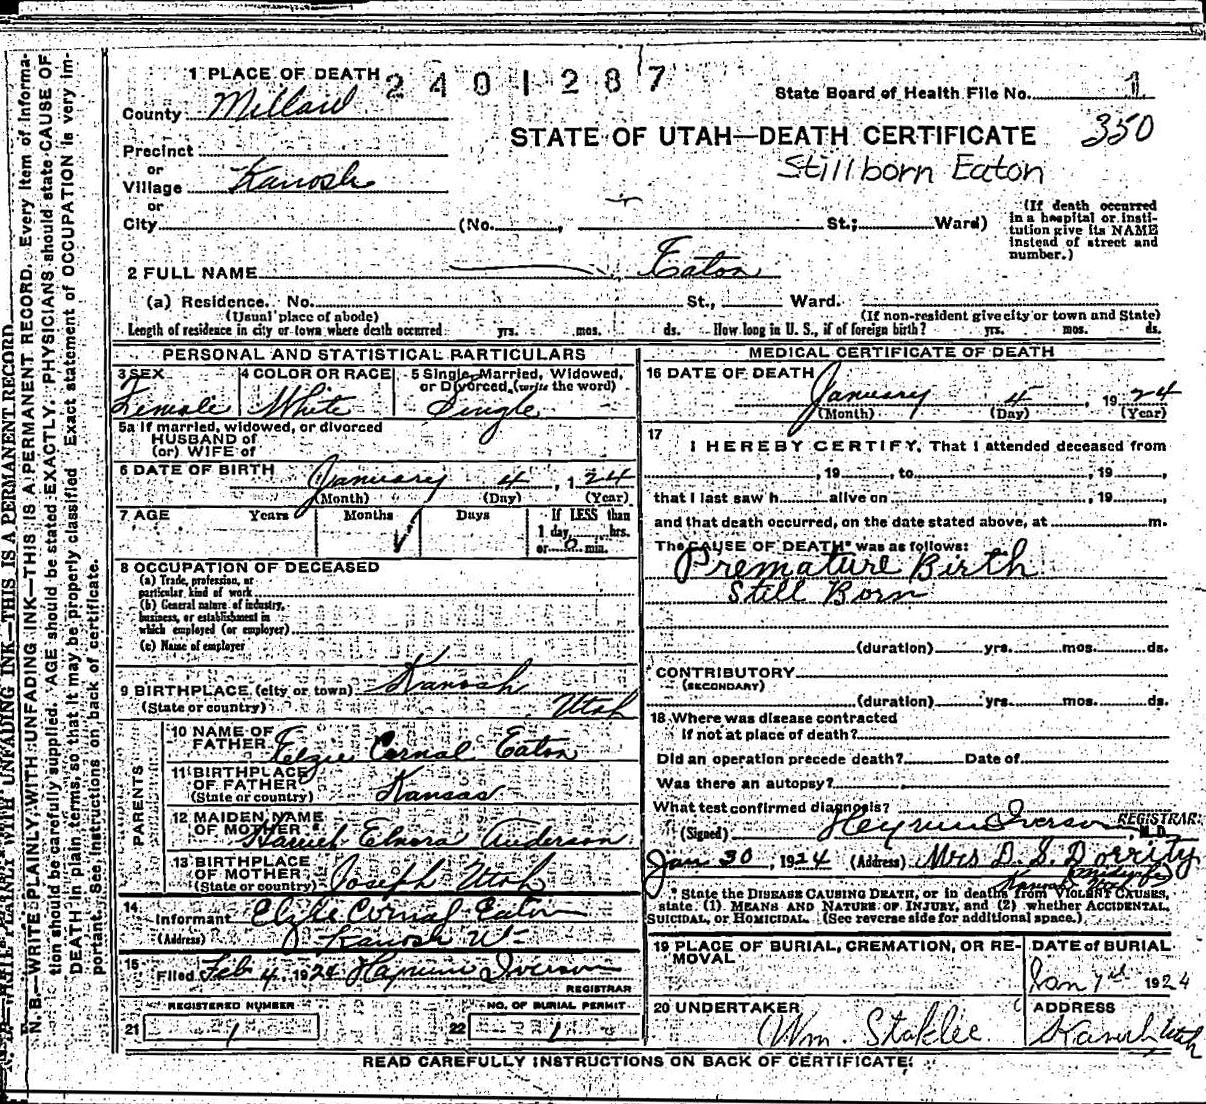 N. B.—WRITE PLAINLY, WITH UNFADING INK—THIS IS A PERMANENT RECORD. Every item of informa-
tion should be carefully supplied. AGE should be stated EXACTLY. PHYSICIANS should state CAUSE OF
DEATH in plain terms, so that it may be properly classified. Exact statement of OCCUPATION is very im-
portant. See instructions on back of certificate.
1 PLACE OF DEATH 2401287
County Millard
State Board of Health File No. 1
350
STATE OF UTAH—DEATH CERTIFICATE
Stillborn Eaton
Precinct
or
Village Kanosh
or
City (No. , St.; Ward)
(If death occurred
in a hospital or insti-
tution give its NAME
instead of street and
number.)
2 FULL NAME Eaton
(a) Residence. No. St., Ward.
(Usual place of abode) (If non-resident give city or town and State)
Length of residence in city or town where death occurred yrs. mos. ds. How long in U. S., if of foreign birth? yrs. mos. ds.
PERSONAL AND STATISTICAL PARTICULARS
3 SEX Female
4 COLOR OR RACE White
5 Single, Married, Widowed,
or Divorced, (write the word)
Single
5a If married, widowed, or divorced
HUSBAND of
(or) WIFE of
6 DATE OF BIRTH January 4, 1 24
(Month) (Day) (Year)
7 AGE Years Months Days If LESS than
1 day, hrs.
or 0 min.
8 OCCUPATION OF DECEASED
(a) Trade, profession, or
particular kind of work
(b) General nature of industry,
business, or establishment in
which employed (or employer)
(c) Name of employer
9 BIRTHPLACE (city or town) Kanosh
(State or country) Utah
PARENTS
10 NAME OF
FATHER Elzie Cornal Eaton
11 BIRTHPLACE
OF FATHER
(State or country) Kansas
12 MAIDEN NAME
OF MOTHER Harriet Elnora Anderson
13 BIRTHPLACE
OF MOTHER
(State or country) Joseph Utah
14
Informant Elzie Cornal Eaton
(Address) Kanosh Ut
15
Filed Feb 4, 1924 Heyrum Iverson
REGISTRAR
REGISTERED NUMBER
21 1
NO. OF BURIAL PERMIT
22 1
MEDICAL CERTIFICATE OF DEATH
16 DATE OF DEATH January 4, 1924
(Month) (Day) (Year)
17
I HEREBY CERTIFY, That I attended deceased from
, 19 , to , 19 ,
that I last saw h alive on , 19 ,
and that death occurred, on the date stated above, at m.
The CAUSE OF DEATH* was as follows:
Premature Birth
Still Born
(duration) yrs. mos. ds.
CONTRIBUTORY
(SECONDARY)
(duration) yrs. mos. ds.
18 Where was disease contracted
if not at place of death?
Did an operation precede death? Date of
Was there an autopsy?
What test confirmed diagnosis?
(Signed) Heyrum Iverson REGISTRAR.
M. D.
Jan 30, 1924 (Address) Mrs D. S. Dorrity
midwife
Kanosh Utah
* State the DISEASE CAUSING DEATH, or in deaths from VIOLENT CAUSES,
state (1) MEANS AND NATURE OF INJURY, and (2) whether ACCIDENTAL,
SUICIDAL, or HOMICIDAL. (See reverse side for additional space.)
19 PLACE OF BURIAL, CREMATION, OR RE-
MOVAL
DATE of BURIAL
Jan 1924
20 UNDERTAKER
Wm. Staklee
ADDRESS
Kanosh Utah
READ CAREFULLY INSTRUCTIONS ON BACK OF CERTIFICATE.